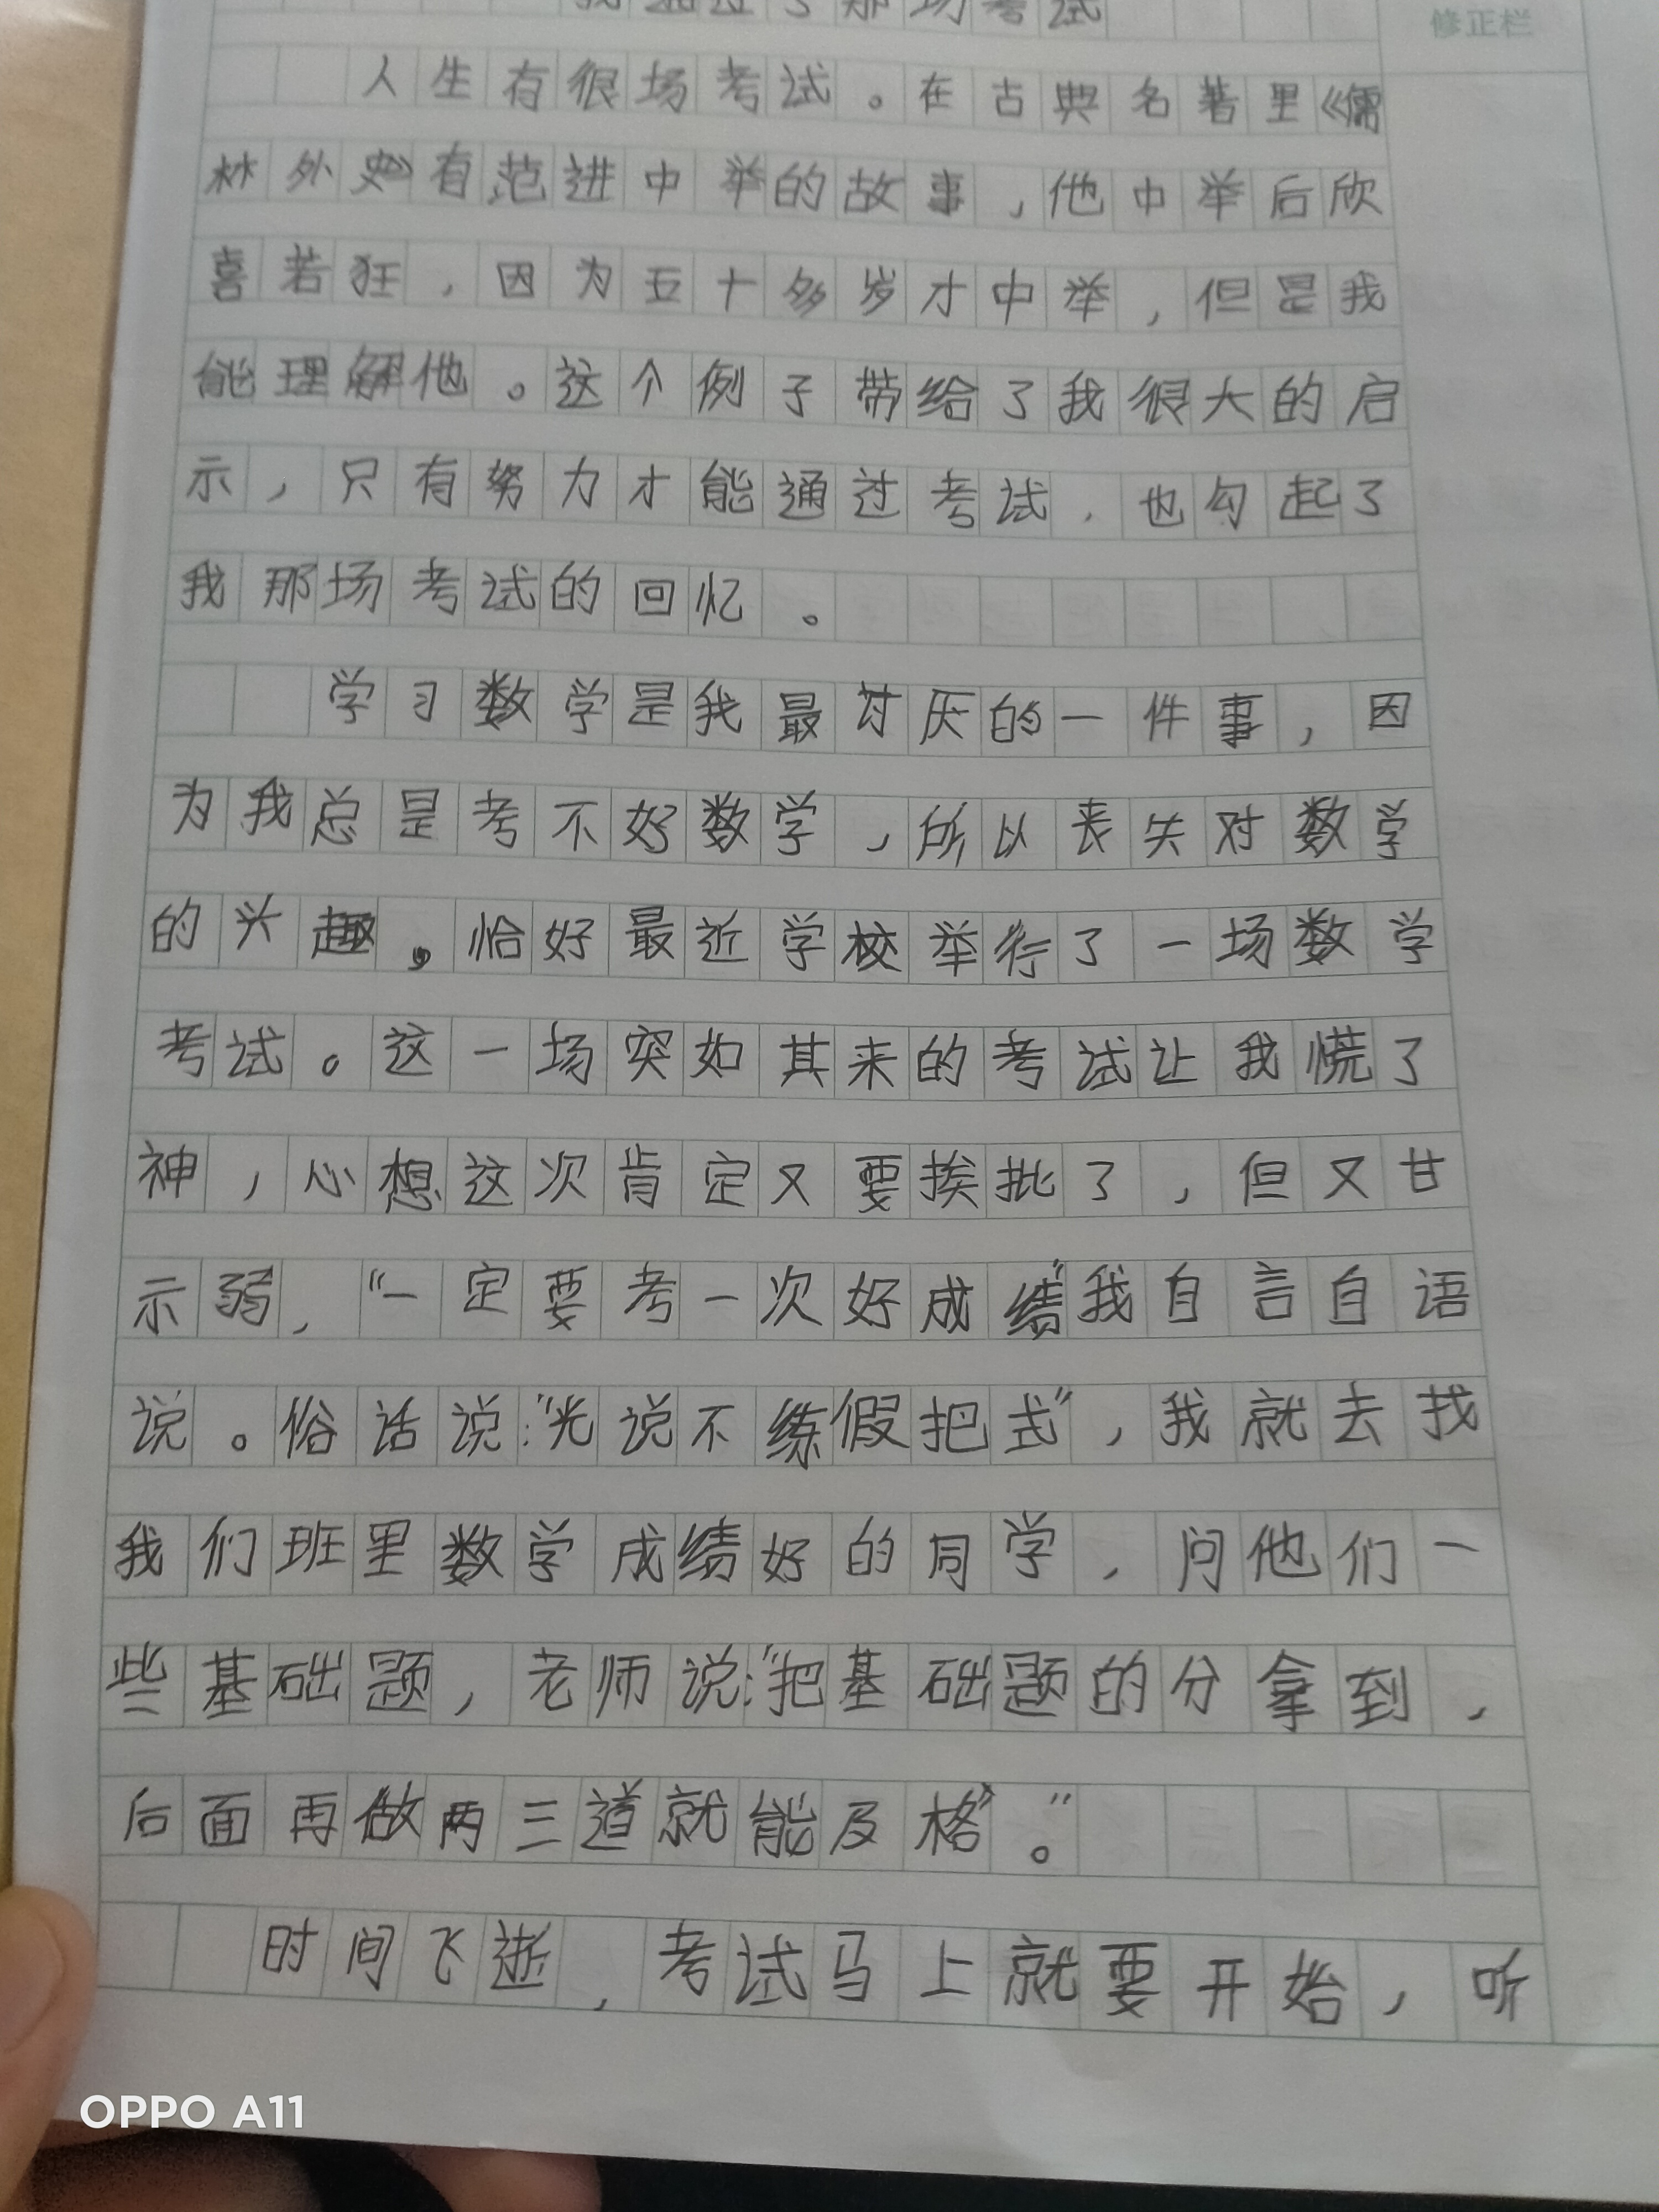 我通过了那场考试
修正栏
人生有很场考试。在古典名著里《儒
林外史》有范进中举的故事，他中举后欣
喜若狂，因为五十多岁才中举，但是我
能理解他。这个例子带给了我很大的启
示，只有努力才能通过考试，也勾起了
我那场考试的回忆。
学习数学是我最讨厌的一件事，因
为我总是考不好数学，所以丧失对数学
的兴趣。恰好最近学校举行了一场数学
考试。这一场突如其来的考试让我慌了
神，心想这次肯定又要挨批了，但又甘
示弱，“一定要考一次好成绩”我自言自语
说。俗话说：“光说不练假把式”，我就去找
我们班里数学成绩好的同学，问他们一
些基础题，老师说：“把基础题的分拿到，
后面再做两三道就能及格”。”
时间飞逝，考试马上就要开始，听
OPPO A11